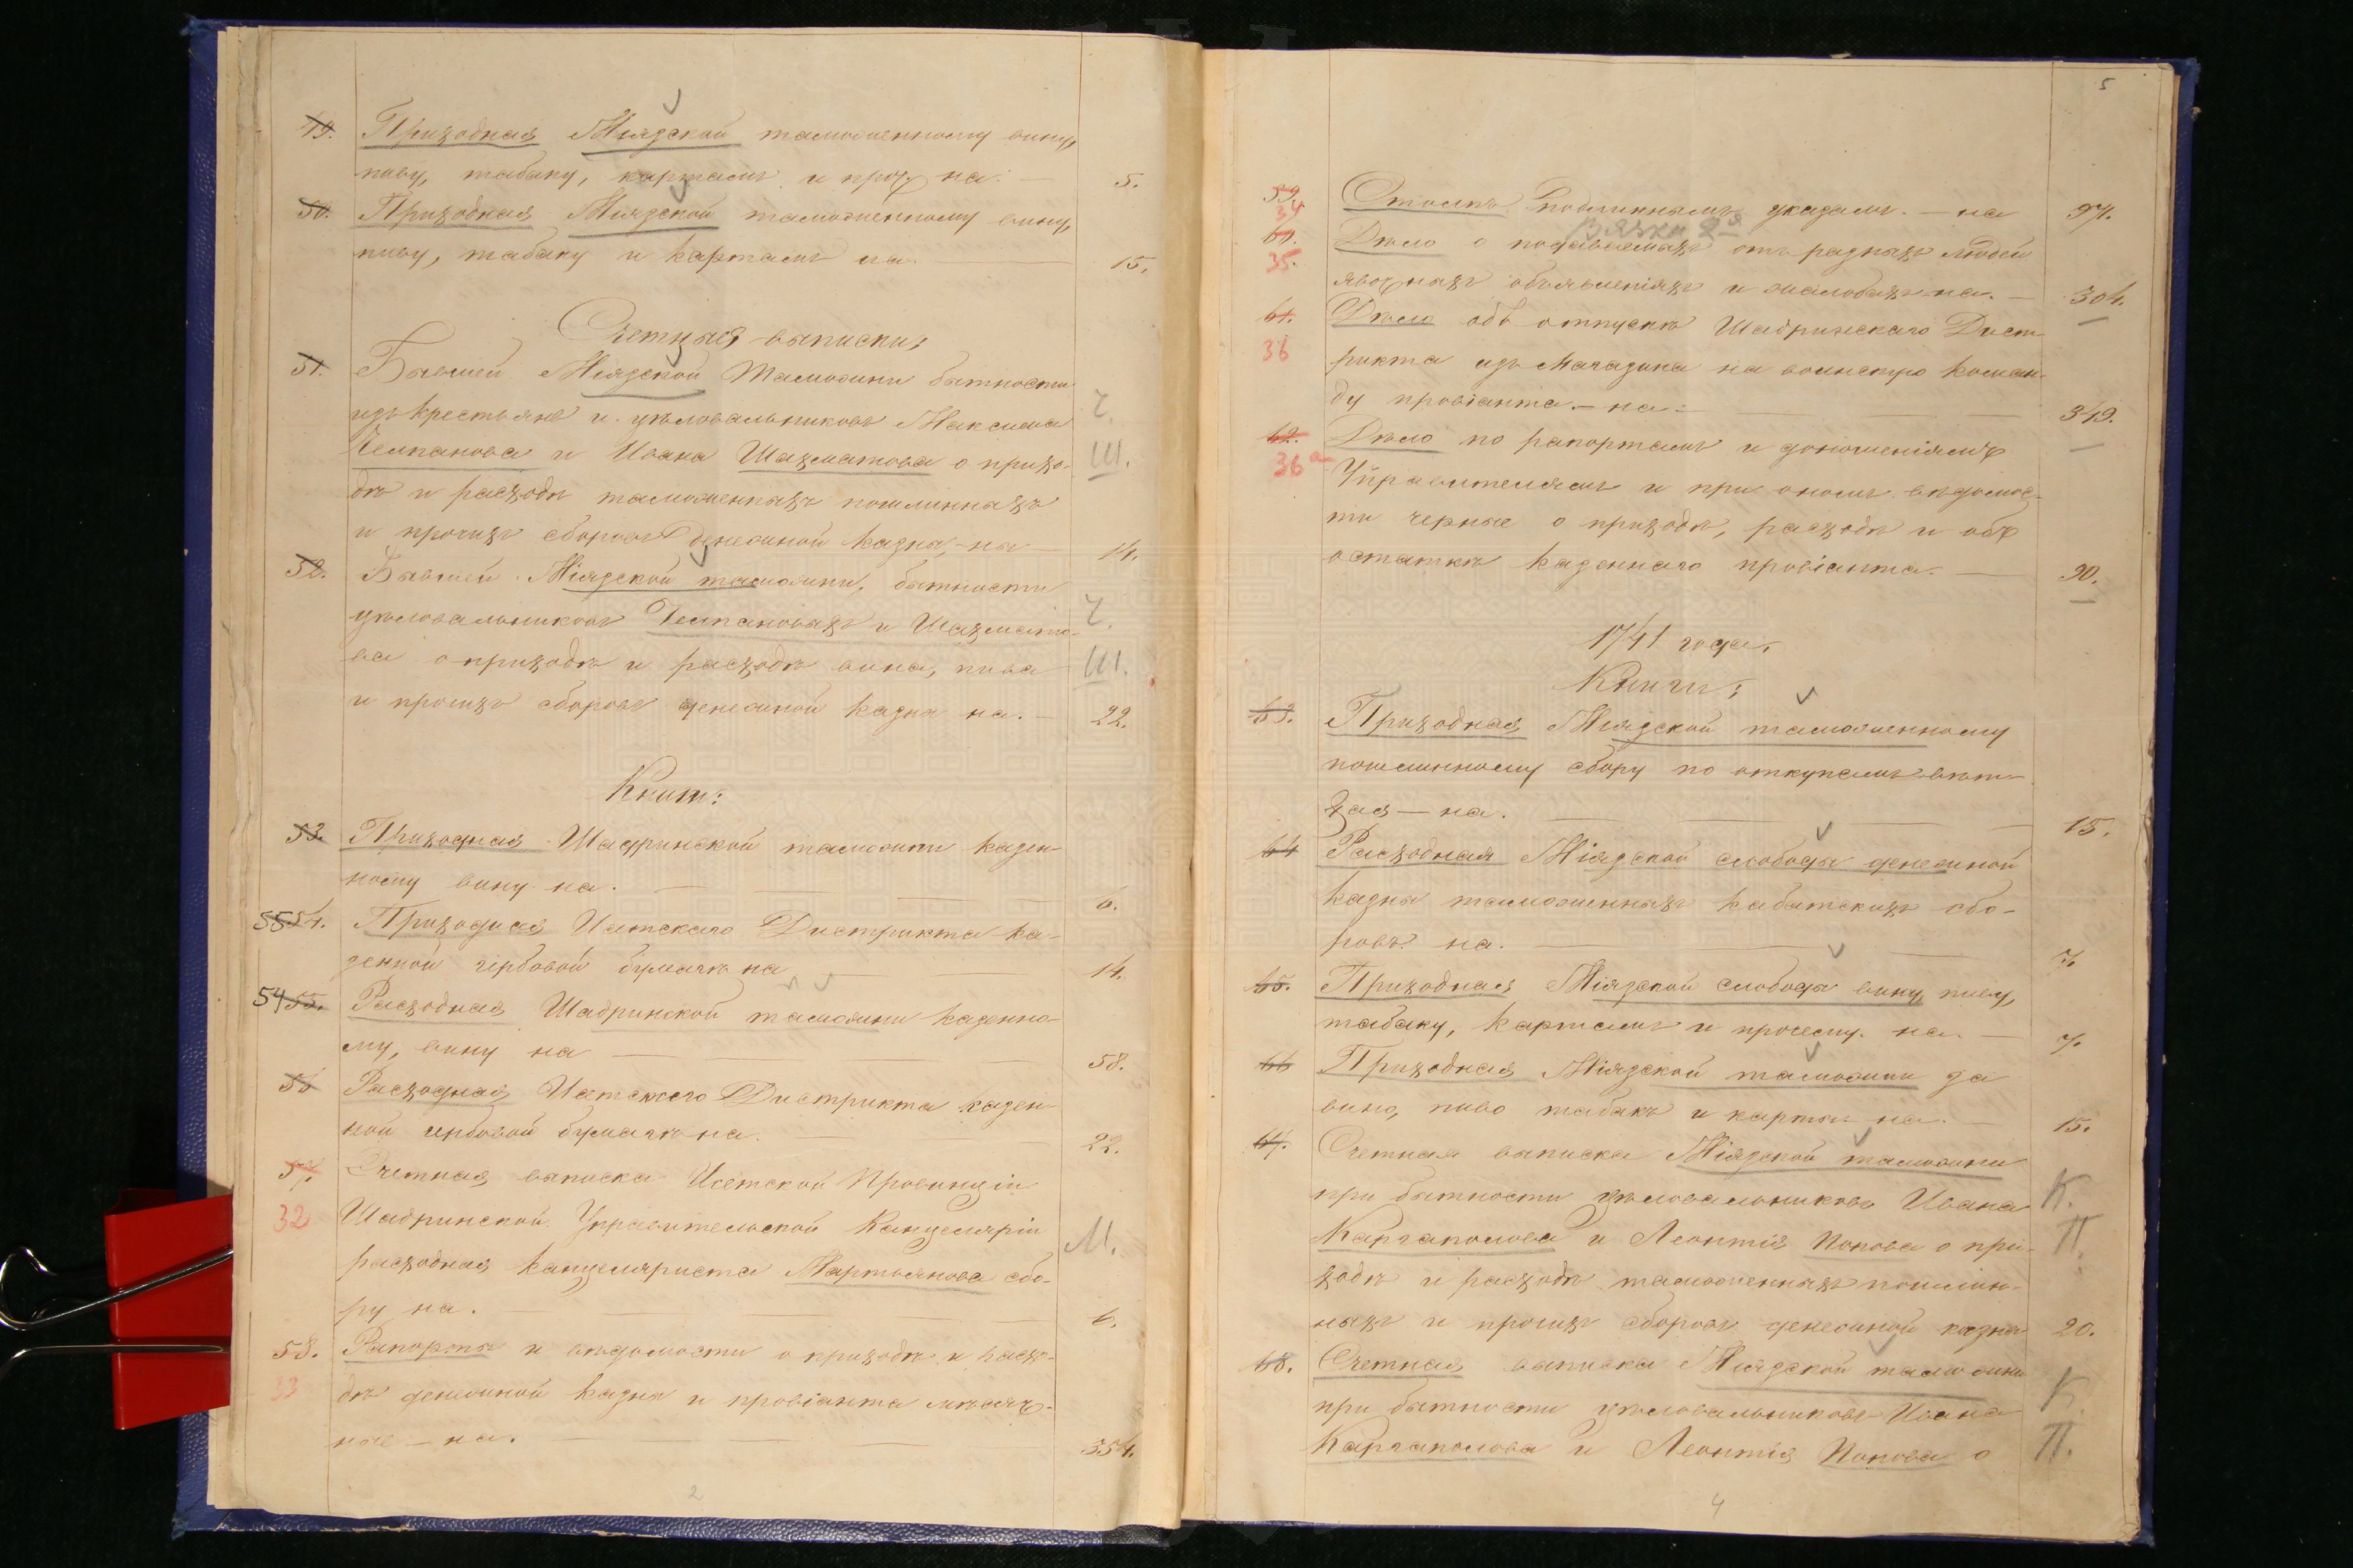 49. Приходная Міязской таможенному вину,
пиву, табаку, картамъ и проч. на. — 5.
50. Приходная Міязской таможенному вину,
пиву, табаку и картамъ на. — 15.
Счетныя выписки,
51. Бывшей Міязской Таможни бытности
изъ крестьянъ и цѣловальниковъ Максима Ч.
Челпанова и Ивана Шахматова о прихо- Ш.
дѣ и расходѣ таможенныхъ пошлинныхъ
и прочихъ сборовъ денежной казны, на — 14.
52. Бывшей Міязской таможни, бытности
цѣловальниковъ Челпановыхъ и Шахмато- Ч.
ва о приходѣ и расходѣ вина, пива Ш.
и прочихъ сборовъ денежной казны на. — 22.
Книги:
53. Приходная Шадринской таможни казен-
ному вину на. — 6.
55 54. Приходная Исетскаго Дистрикта ка-
зенной гербовой бумагѣ на — 14.
54 55. Расходная Шадринской таможни казенно-
му, вину на — 58.
56 Расходная Исетскаго Дистрикта казен-
ной гербовой бумагѣ на. — 22.
57. Счетная выписка Исетской Провинціи
32 Шадринской Управительской Канцеляріи
расходная канцеляриста Мартьянова сбо- М.
ру на. — 6.
58. Рапорты и вѣдомости о приходѣ и расхо-
33 дѣ денежной казны и провіанта мѣсяч-
ные — на. — 354.
2
5
59. Столпъ подлиннымъ указамъ. — на 97.
34
Вязка 2я
60. Дѣло о подаваемыхъ отъ разныхъ людей
35. явочныхъ объявленіяхъ и жалобахъ на. — 304.
61. Дѣло объ отпускѣ Шадринскаго Дист-
36 рикта изъ Магазина на воинскую коман-
ду провіанта. — на: — 349.
62. Дѣло по рапортамъ и доношеніямъ
36а Управителямъ и при ономъ вѣдомос-
ти черные о приходѣ, расходѣ и объ
остаткѣ казеннаго провіанта. — 90.
1741 года.
Книги:
63. Приходная Міязской таможенному
пошлинному сбору по откупамъ вят-
кая — на. — 15.
64 Расходная Міязской слободы денежной
казны таможенныхъ кабатскихъ сбо-
ровъ на. — 7.
65. Приходная Міязской слободы вину, пиву,
табаку, картамъ и прочему на. — 7.
66 Приходная Міязской таможни за
вино, пиво табакъ и карты на. — 15.
67. Счетная выписка Міязской таможни
при бытности цѣловальниковъ Ивана К.
Каргаполова и Леонтія Попова о при- П.
ходѣ и расходѣ таможенныхъ пошлин-
ныхъ и прочихъ сборовъ денежной казны 20.
68. Счетная выписка Міязской таможни
при бытности цѣловальниковъ Ивана К.
Каргаполова и Леонтія Попова о П.
4